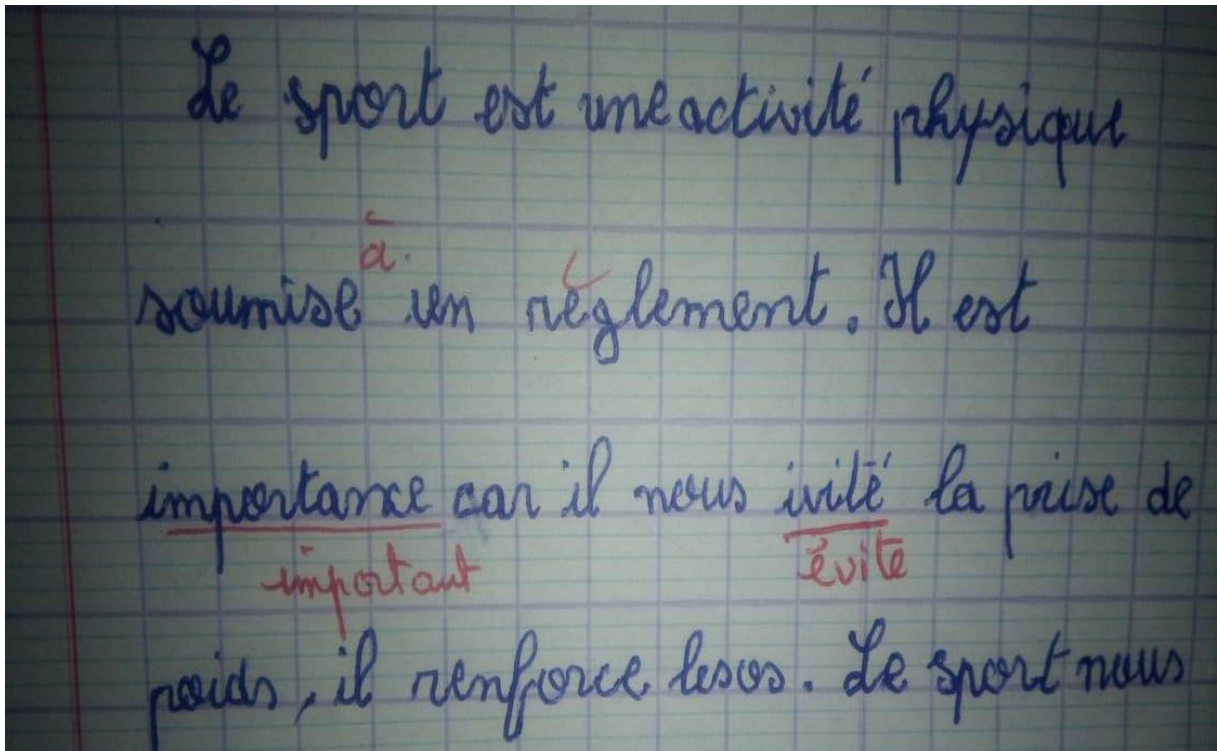 Le sport est une activité physique
à
soumise un réglement. Il est
importance car il nous ivité la prise de
important évite
poids, il renforce les os. Le sport nous